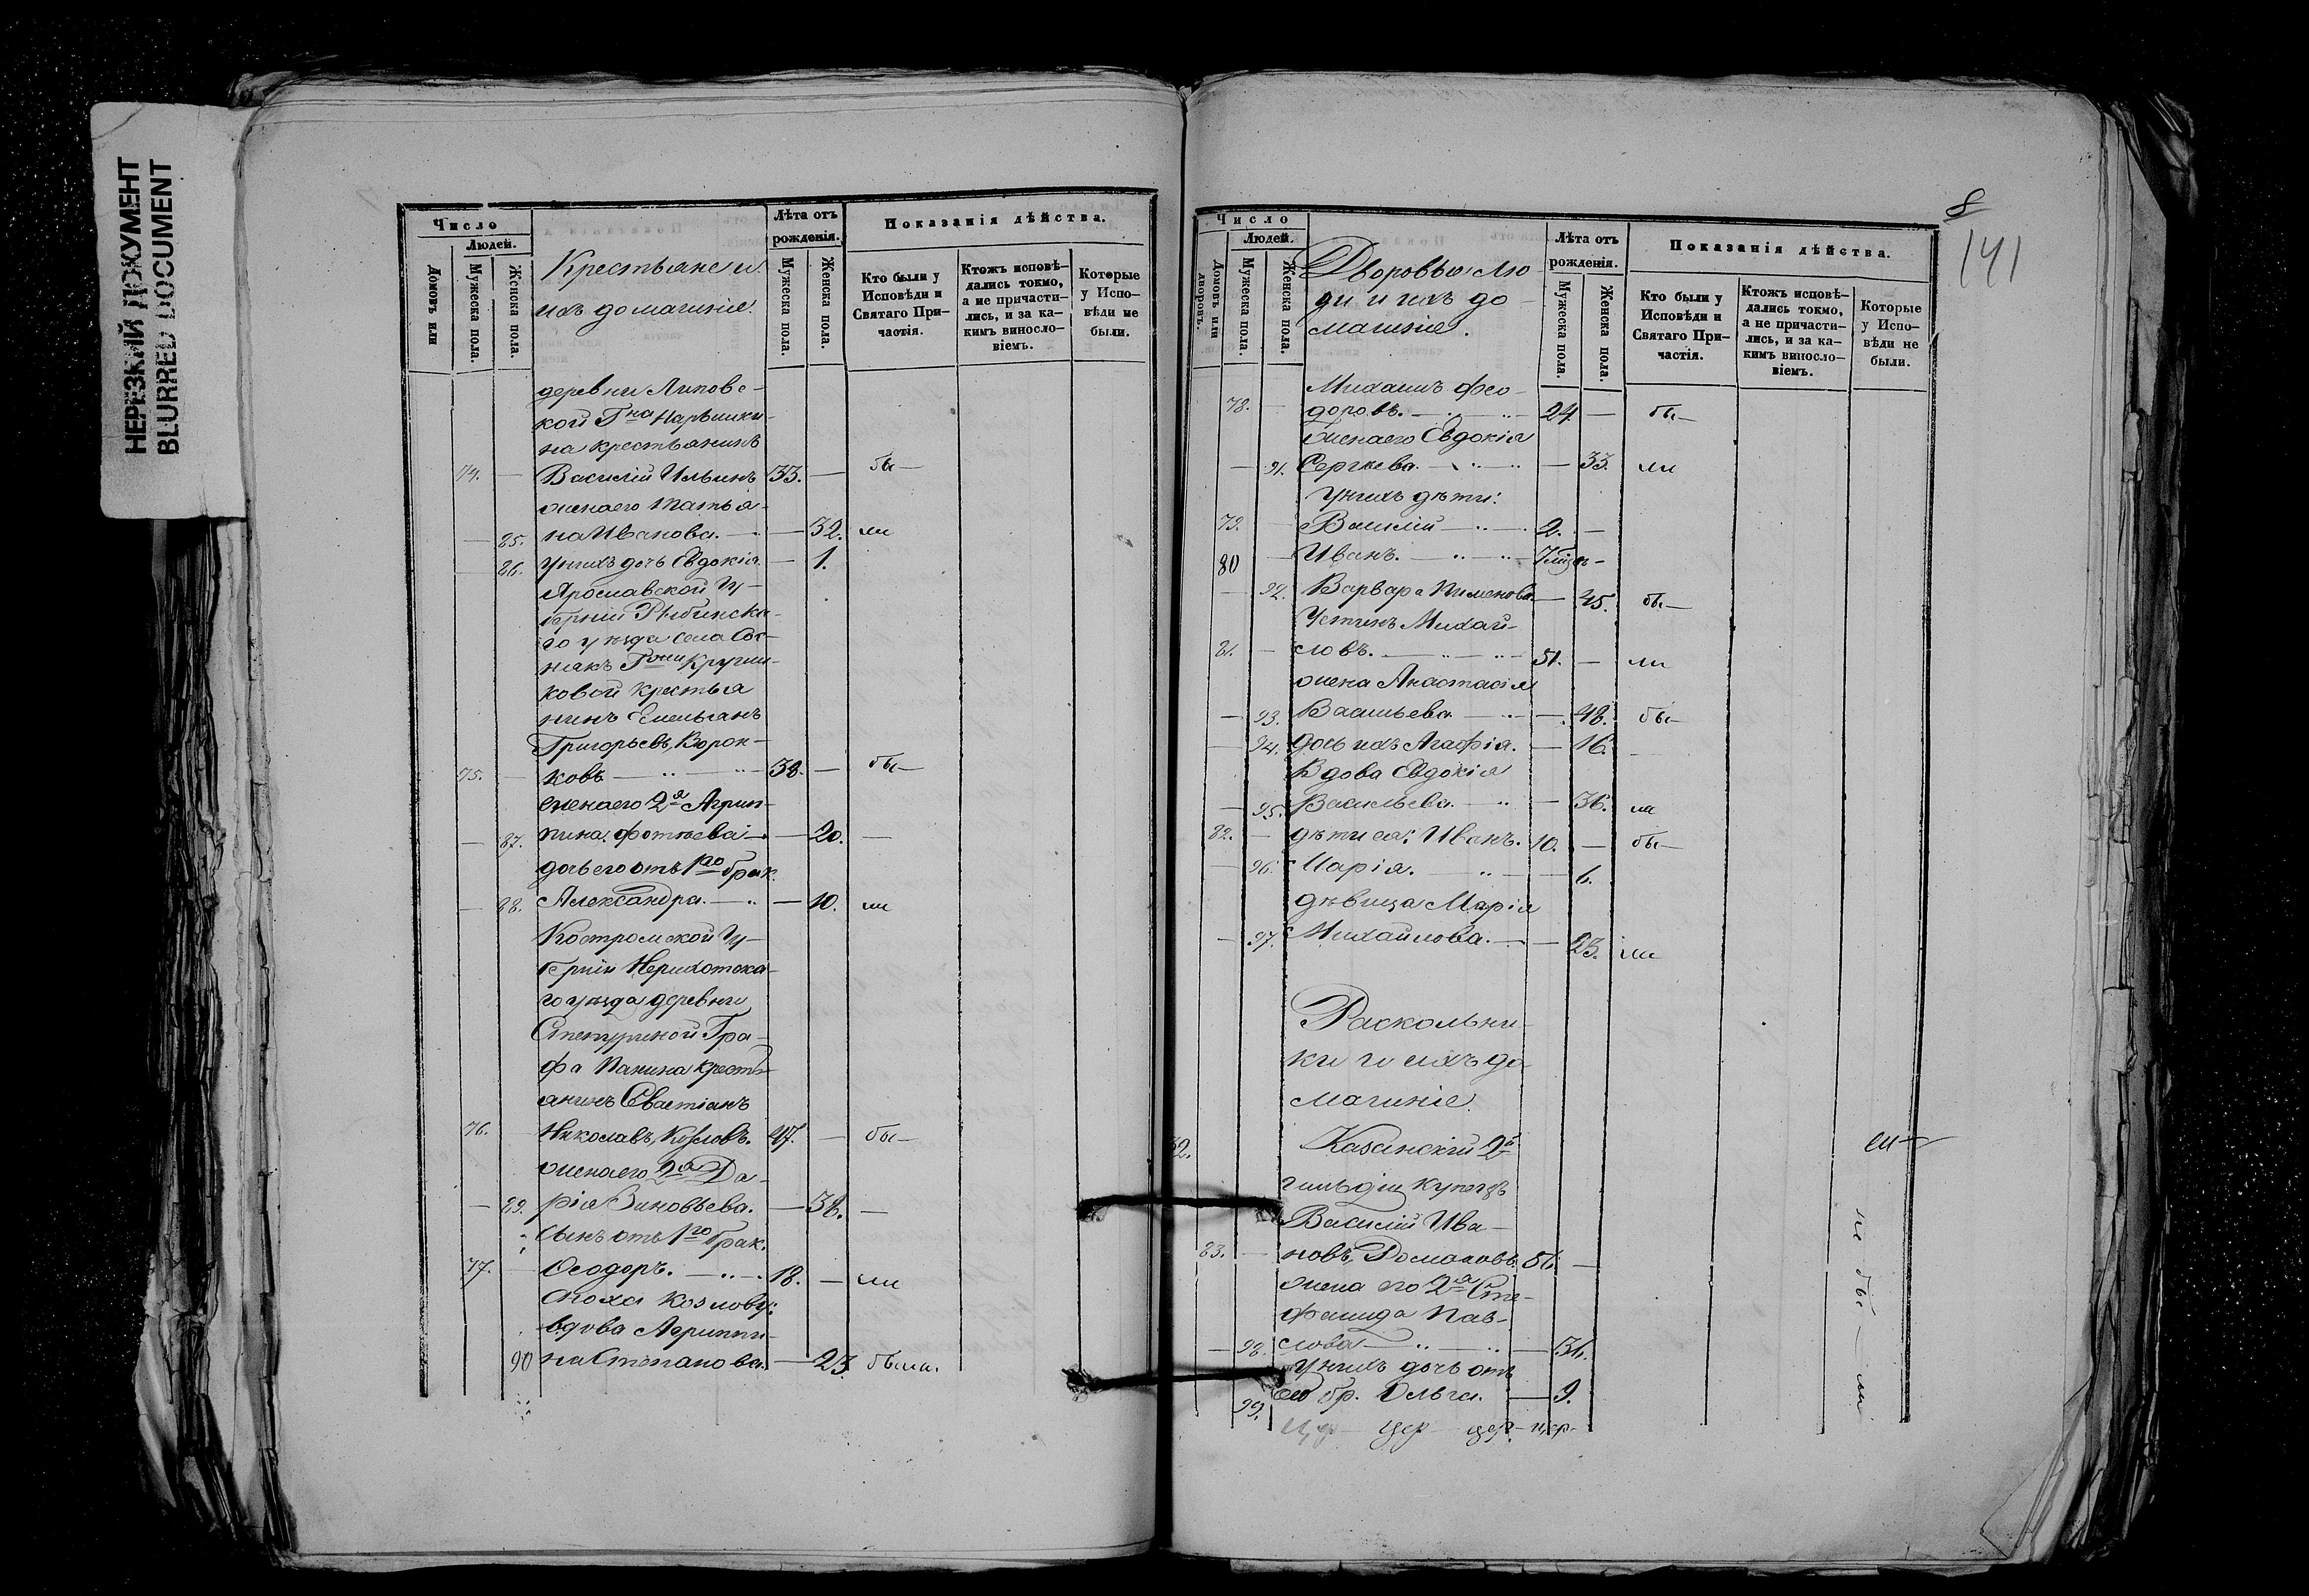 НЕРЕЗКИЙ ДОКУМЕНТ
BLURRED DOCUMENT
Число
Людей.
Домовъ или
Мужеска пола.
Женска пола.
Крестьяне и
ихъ домашніе.
Лѣта отъ
рожденія.
Мужеска пола.
Женска пола.
Показанія дѣйства.
Кто были у
Исповѣди и
Святаго При-
частія.
Ктожъ исповѣ-
дались токмо,
а не причасти-
лись, и за ка-
кимъ винословіемъ.
Которые
у Испо-
вѣди не
были.
деревни Липовс-
кой Гна Нарышки-
на крестьянинъ
74. — Василій Ильинъ 33. — бы—
жена его Татья-
— 85. на Иванова. — 32. ли
— 86. у нихъ дочь Евдокія — 1.
Ярославской Гу-
берніи Рыбинска-
го уѣзда села
Гжи Кругли-
ковой крестья
нинъ Емельянъ
Григорьевъ, Ворон-
75. — ковъ — „ — „ 38. — бы—
жена его 2я Агрип-
— 87. пина Фотіева — — 20. —
дочь его отъ 1го брак.
— 88. Александра. — „ — 10. ли
Костромской Гу-
берніи Нерихотска-
го уѣзда деревни
Гра-
фа Панина кресть
янинъ Севастіанъ
76. — Николаевъ, Козловъ. 47. — бы—
жена его 2я Да-
— 89. рія Зиновьева. — 38. —
сынъ отъ 1го брак.
77. — Ѳеодоръ. — „ — 18. — ли
сноха Козлову:
вдова Агриппи-
90 на Степанова. — 23. была.
8
141
Число
Людей.
Домовъ или
дворовъ.
Мужеска пола.
Женска пола.
Дворовые лю
ди и ихъ до
машніе.
Лѣта отъ
рожденія.
Мужеска пола.
Женска пола.
Показанія дѣйства.
Кто были у
Исповѣди и
Святаго При-
частія.
Ктожъ исповѣ-
дались токмо,
а не причасти-
лись, и за ка-
кимъ винословіемъ.
Которые
у Испо-
вѣди не
были.
Михаилъ Фео-
78. — доровъ. — „ — 24 — бы—
жена его Евдокія
— 91. Сергѣева. — „ — „ — 33. ли
У нихъ дѣти:
79. — Василій — „ — 2. —
80 — Иванъ. — „ — „ 7 мцъ —
— 92. Варвара Пименова — 45. бы—
Устинъ Михай-
81. — ловъ. — „ — „ — 51. — ли
жена Анастасія
— 93. Васильева — „ — 48. бы—
— 94. Дочь ихъ Агафія. — 16. —
Вдова Евдокія
— 95. Васильева. — „ — 36. ли
82. — дѣти ея: Иванъ. 10. — бы—
— 96. Марія. — „ — 6.
дѣвица Марія
— 97. Михайлова. — — 23. ли
Раскольни-
ки и ихъ до
машніе.
32. Казанскій 2й
гильдіи купецъ
Василій Ива-
83. — новъ, Романовъ 56. —
жена его 2я Сте-
фанида Пав-
— 98. лова — „ — „ — 36.
У нихъ дочь отъ
99. бр. Ольга. — 9.
не бы — ли